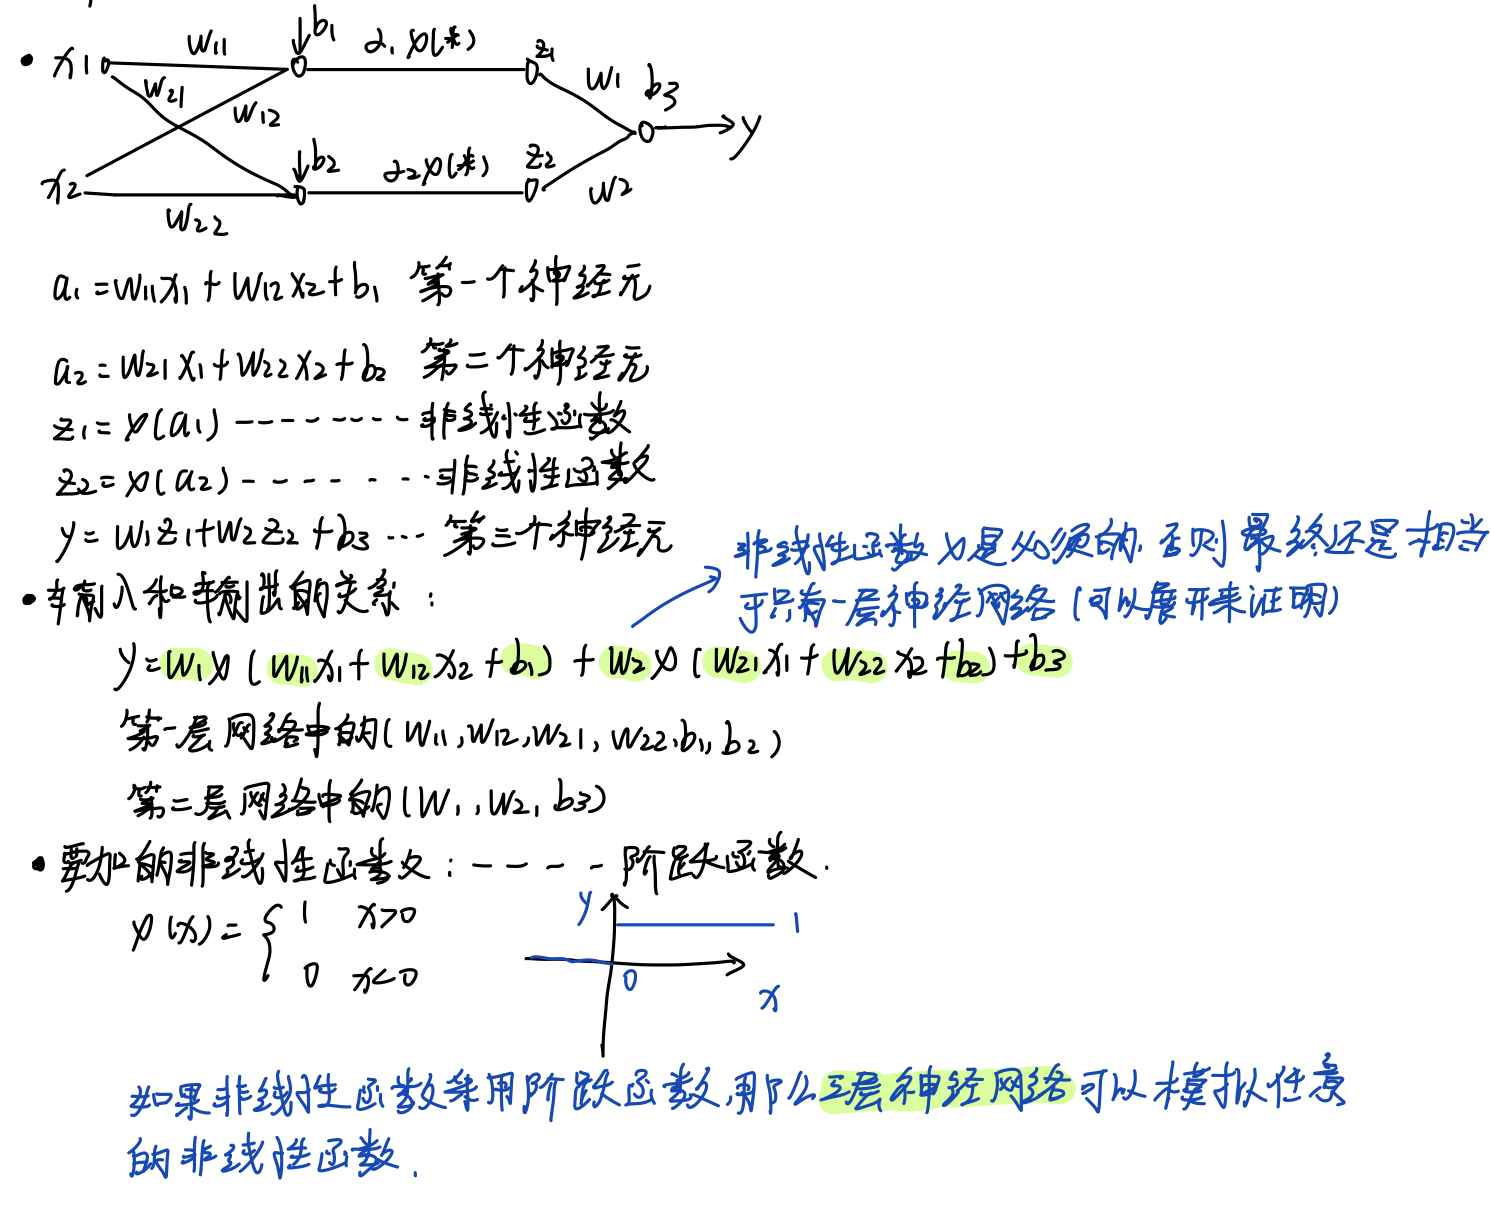 w11 ↓b1 a1 φ(*) z1
• x1 w21 w12 w1 b3 → y
x2 ↓b2 a2 φ(*) z2 w2
w22
a1 = w11x1 + w12x2 + b1 第一个神经元
a2 = w21x1 + w22x2 + b2 第二个神经元
z1 = φ(a1) --------- 非线性函数
z2 = φ(a2) ------- 非线性函数
y = w1z1 + w2z2 + b3 --- 第三个神经元
非线性函数φ是必须的,否则最终还是相当
于只有一层神经网络(可以展开来证明)
• 输入和输出的关系:
y = w1φ(w11x1 + w12x2 + b1) + w2φ(w21x1 + w22x2 + b2) + b3
第一层网络中的(w11,w12,w21,w22,b1,b2)
第二层网络中的(w1,w2,b3)
• 要加的非线性函数:---- 阶跃函数.
φ(x) = { 1 x>0
0 x<0
y 1
0 x
如果非线性函数采用阶跃函数,那么三层神经网络可以模拟任意
的非线性函数.